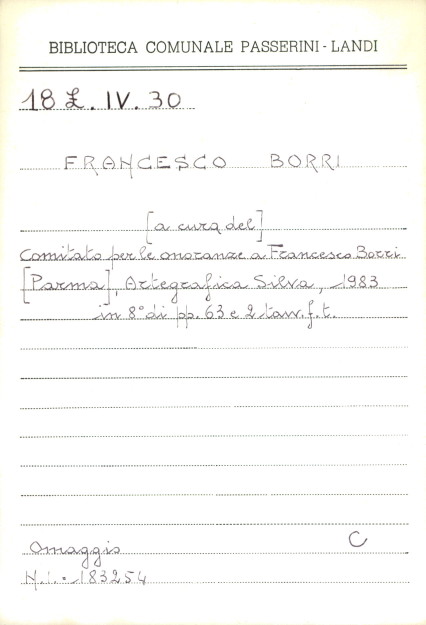 BIBLIOTECA COMUNALE PASSERINI - LANDI
18 Ł. IV. 30
FRANCESCO BORRI
[a cura del]
Comitato per le onoranze a Francesco Borri
[Parma], Artegrafica Silva, 1983
in 8° di pp. 63 e 2 tavv. f. t.
Omaggio C
N.i. 183254